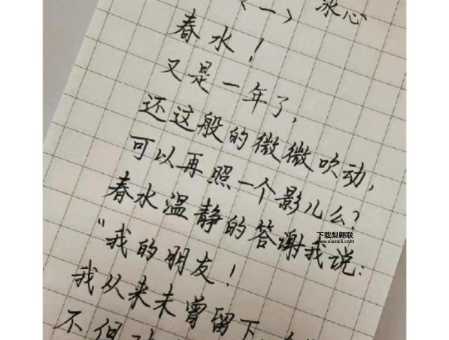 <一> 冰心
春水！
又是一年了，
还这般的微微吹动，
可以再照一个影儿么？
春水温静的答谢我说：
“我的朋友！
我从来未曾留下
不但